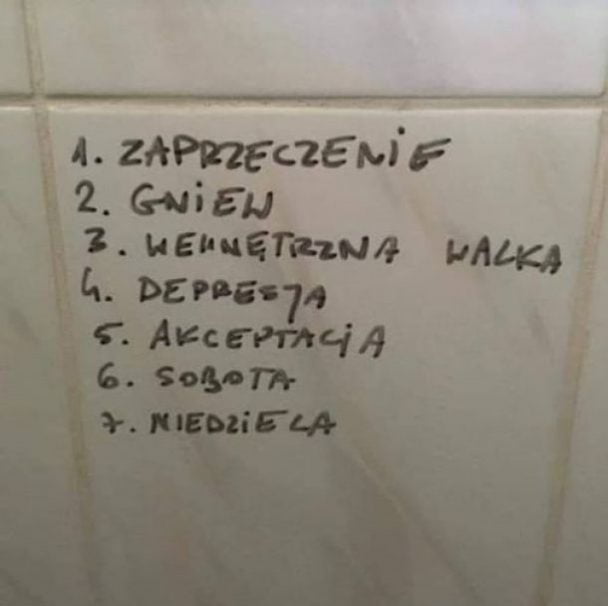 1. ZAPRZECZENiE
2. GNiEW
3. WEWNĘTRZNA WALKA
4. DEPRESJA
5. AKCEPTACjA
6. SOBOTA
7. NIEDZiELA